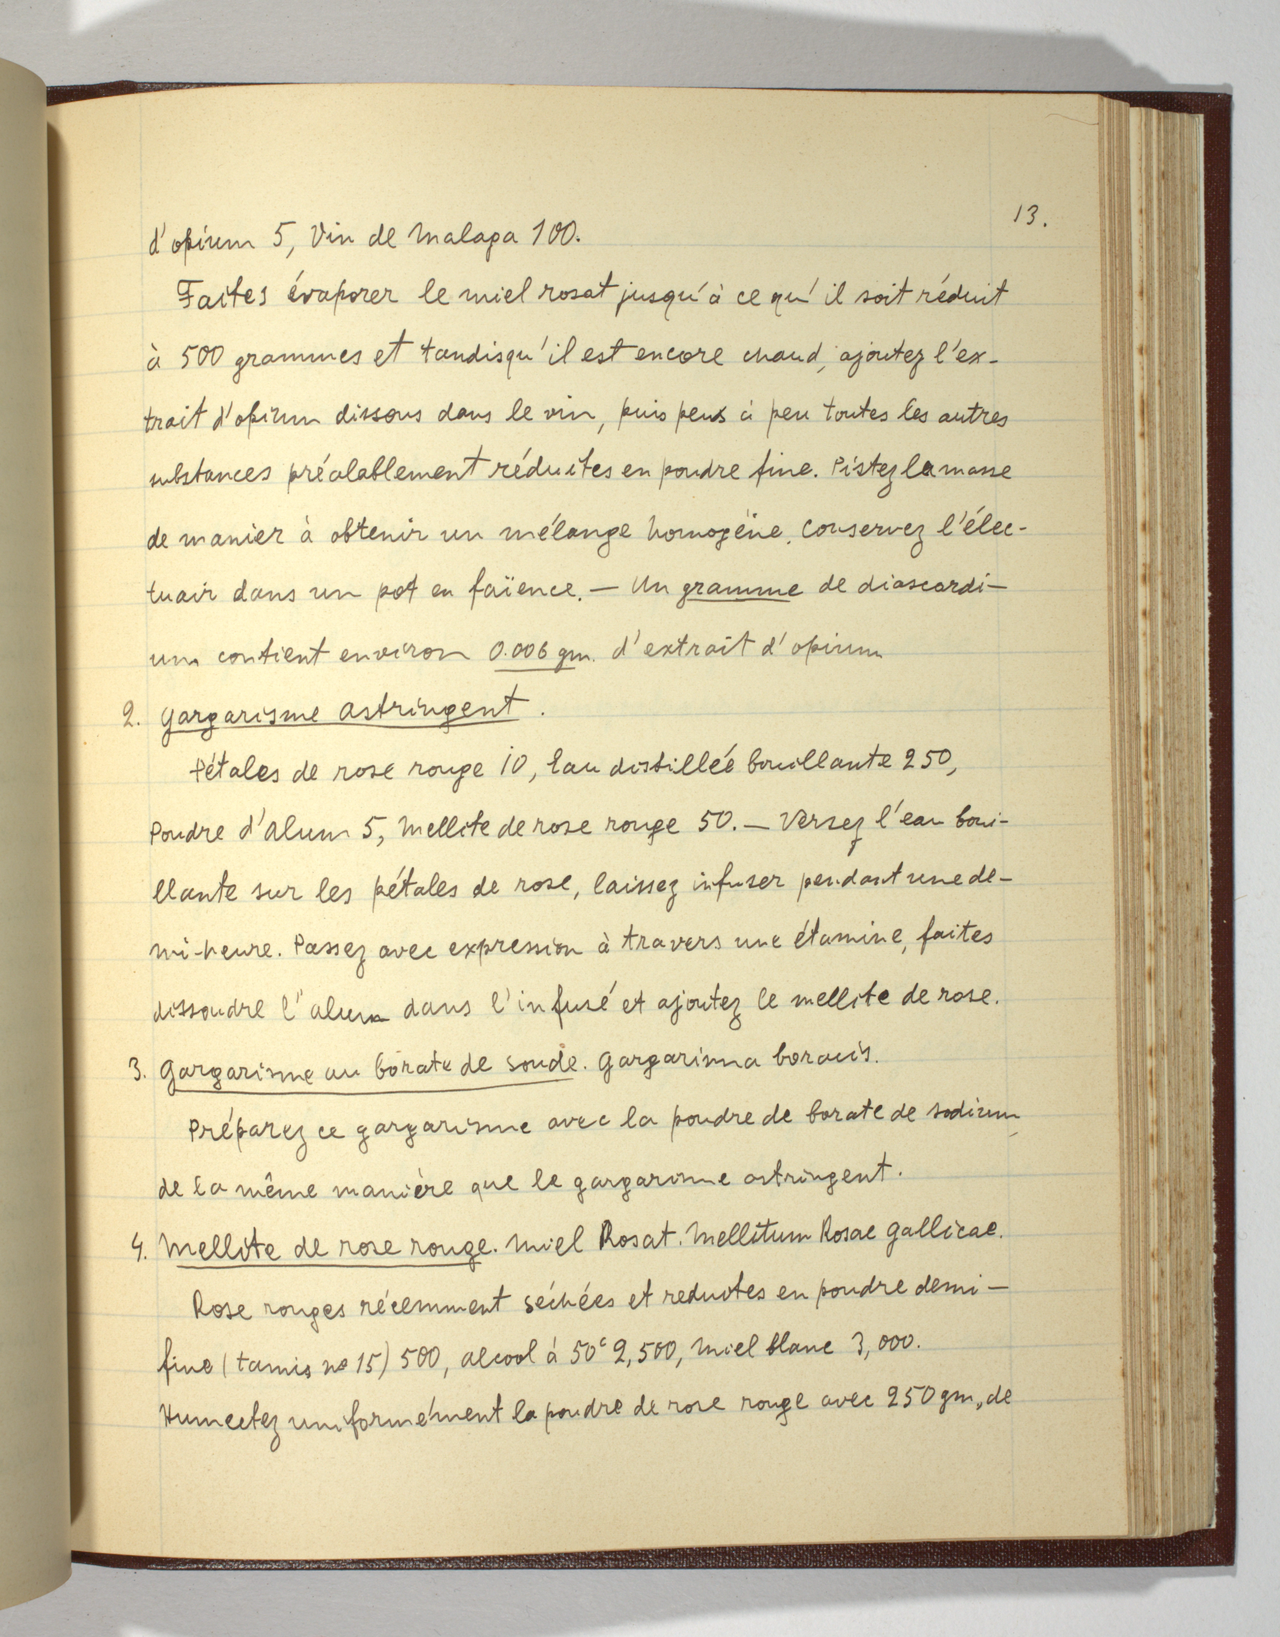 13.
d'opium 5, Vin de Malaga 100.
Faites évaporer le miel rosat jusqu'à ce qu'il soit réduit
à 500 grammes et tandisqu'il est encore chaud, ajoutez l'ex-
trait d'opium dissous dans le vin, puis peu à peu toutes les autres
substances préalablement réduites en poudre fine. Pistez la masse
de manier à obtenir un mélange homogéne. Conservez l'élec-
tuair dans un pot en faïence. — Un gramme de diascordi-
um contient environ 0.006 gm. d'extrait d'opium
2. Gargarisme astringent.
Pétales de rose rouge 10, Eau distilleé bouillante 250,
Poudre d'alum 5, Mellite de rose rouge 50. — Versez l'eau boui-
llante sur les pétales de rose, laissez infuser pendant une de-
mi-heure. Passez avec expression à travers une étamine, faites
dissoudre l'alum dans l'infusé et ajoutez le mellite de rose.
3. Gargarisme au borate de soude. Gargarisma boracis.
Préparez ce gargarisme avec la poudre de borate de sodium,
de la même manière que le gargarisme astringent.
4. Mellite de rose rouge. Miel Rosat. Mellitum Rosae gallicae.
Rose rouges récemment séchées et reduites en poudre demi-
fine (tamis no 15) 500, alcool à 50c 2,500, Miel blanc 3,000.
Humectez uniformément la poudre de rose rouge avec 250 gm, de